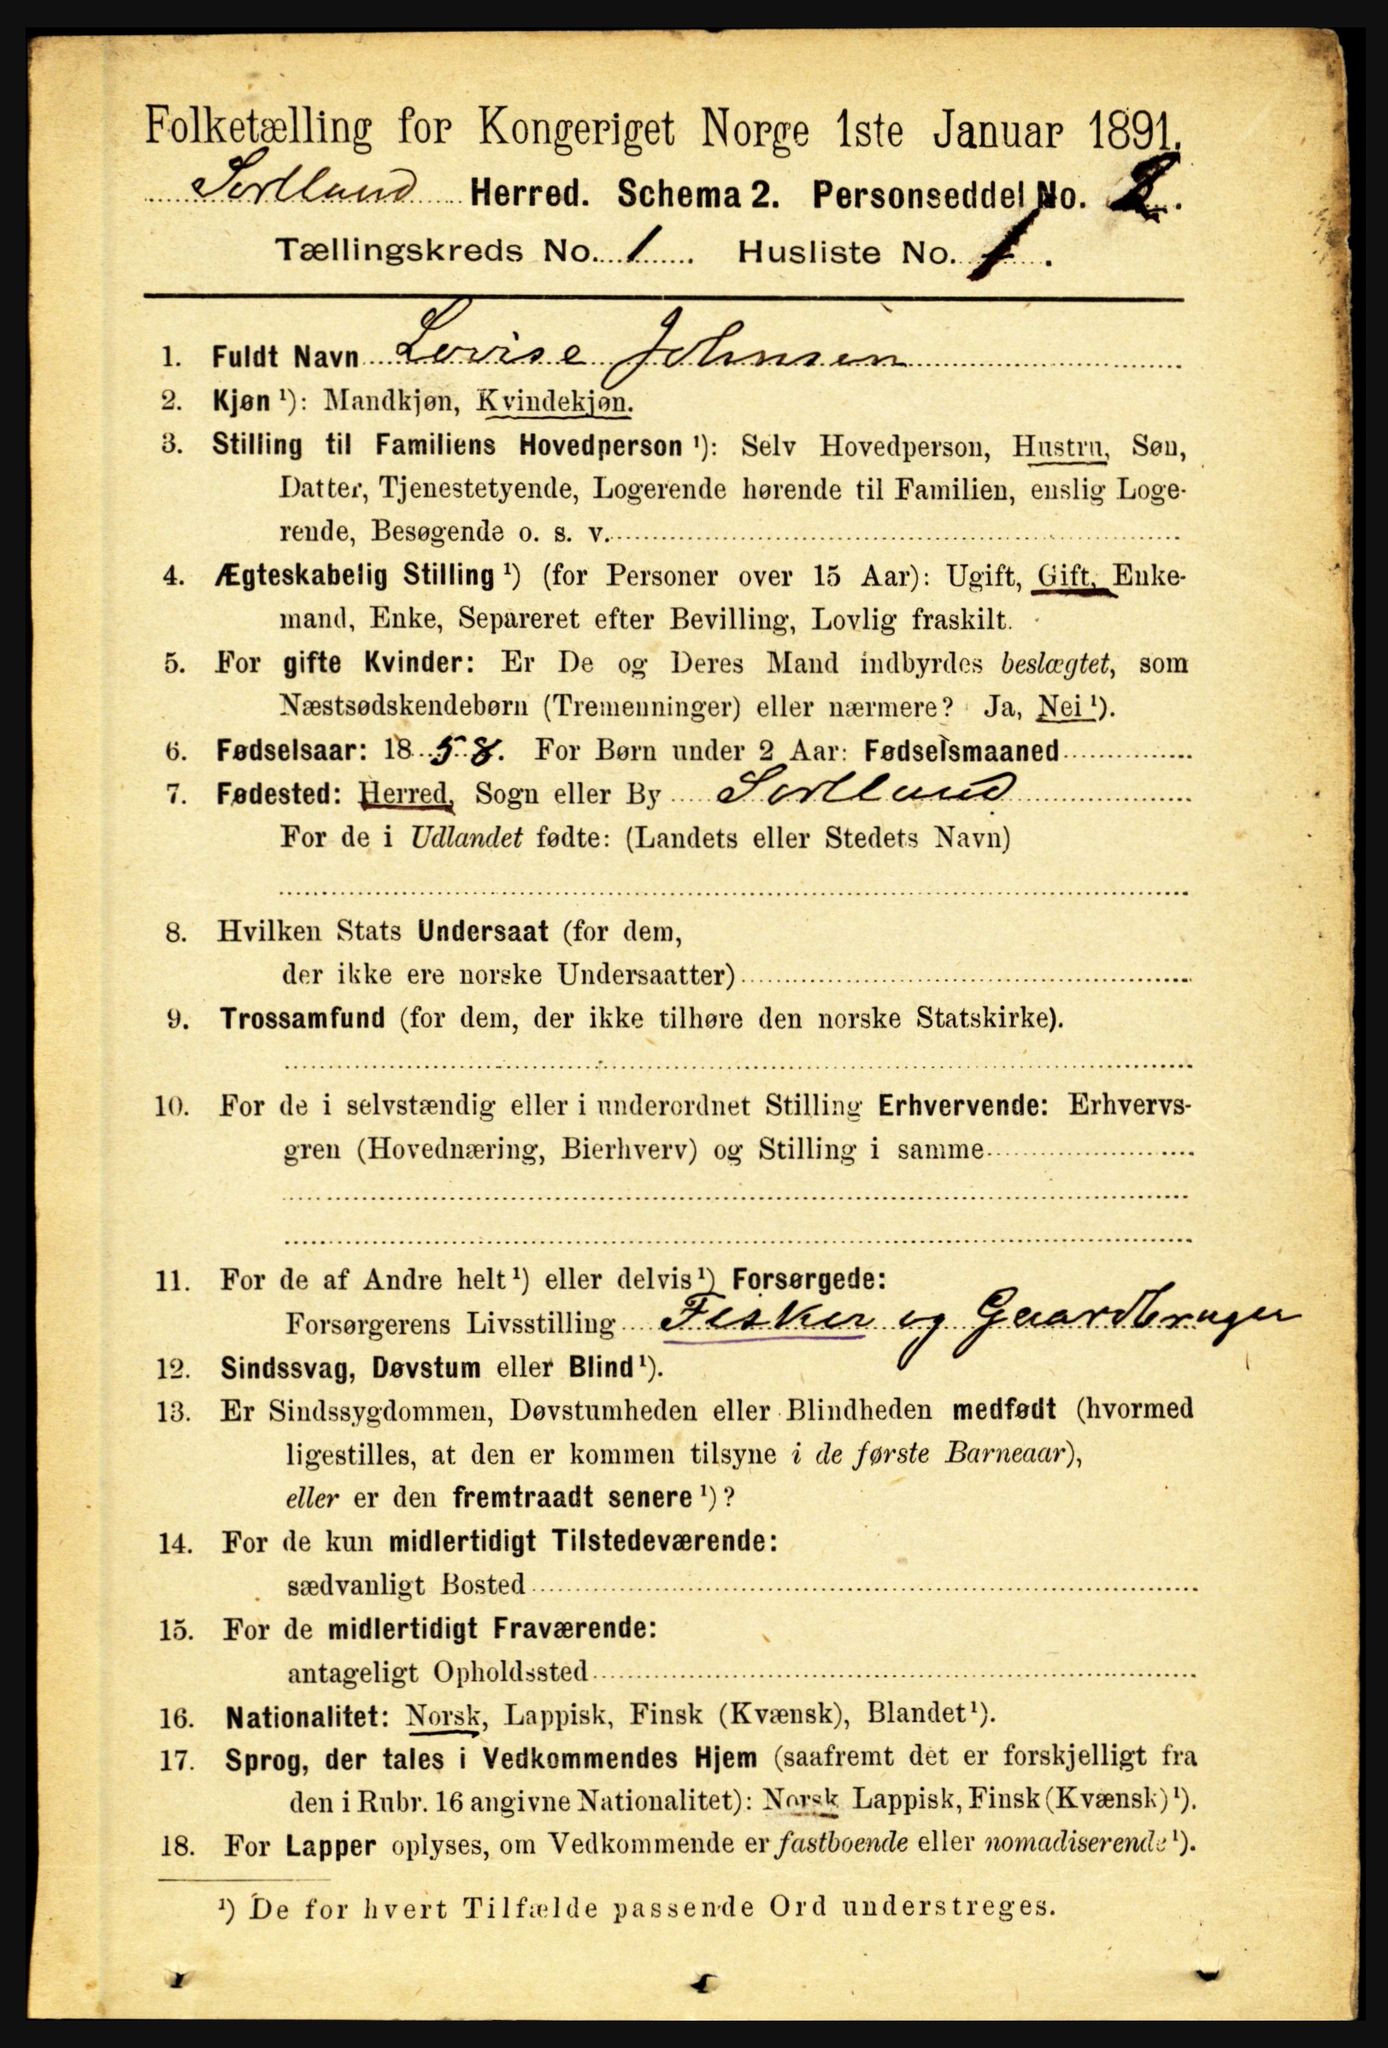 Folketælling for Kongeriget Norge 1ste Januar 1891.
Sortland Herred. Schema 2. Personseddel No. 2.
Tællingskreds No. 1. Husliste No. 1.
1. Fuldt Navn Lovise Johnsen
2. Kjøn ¹): Mandkjøn, Kvindekjøn.
3. Stilling til Familiens Hovedperson ¹): Selv Hovedperson, Hustru, Søn,
Datter, Tjenestetyende, Logerende hørende til Familien, enslig Loge-
rende, Besøgende o. s. v.
4. Ægteskabelig Stilling ¹) (for Personer over 15 Aar): Ugift, Gift, Enke-
mand, Enke, Separeret efter Bevilling, Lovlig fraskilt.
5. For gifte Kvinder: Er De og Deres Mand indbyrdes beslægtet, som
Næstsødskendebørn (Tremenninger) eller nærmere? Ja, Nei ¹).
6. Fødselsaar: 1858. For Børn under 2 Aar: Fødselsmaaned
7. Fødested: Herred, Sogn eller By Sortland
For de i Udlandet fødte: (Landets eller Stedets Navn)
8. Hvilken Stats Undersaat (for dem,
der ikke ere norske Undersaatter)
9. Trossamfund (for dem, der ikke tilhøre den norske Statskirke).
10. For de i selvstændig eller i underordnet Stilling Erhvervende: Erhvervs-
gren (Hovednæring, Bierhverv) og Stilling i samme
11. For de af Andre helt ¹) eller delvis ¹) Forsørgede:
Forsørgerens Livsstilling Fisker og Gaardbruger
12. Sindssvag, Døvstum eller Blind ¹).
13. Er Sindssygdommen, Døvstumheden eller Blindheden medfødt (hvormed
ligestilles, at den er kommen tilsyne i de første Barneaar),
eller er den fremtraadt senere ¹)?
14. For de kun midlertidigt Tilstedeværende:
sædvanligt Bosted
15. For de midlertidigt Fraværende:
antageligt Opholdssted
16. Nationalitet: Norsk, Lappisk, Finsk (Kvænsk), Blandet ¹).
17. Sprog, der tales i Vedkommendes Hjem (saafremt det er forskjelligt fra
den i Rubr. 16 angivne Nationalitet): Norsk Lappisk, Finsk (Kvænsk) ¹).
18. For Lapper oplyses, om Vedkommende er fastboende eller nomadiserende ¹).
¹) De for hvert Tilfælde passende Ord understreges.